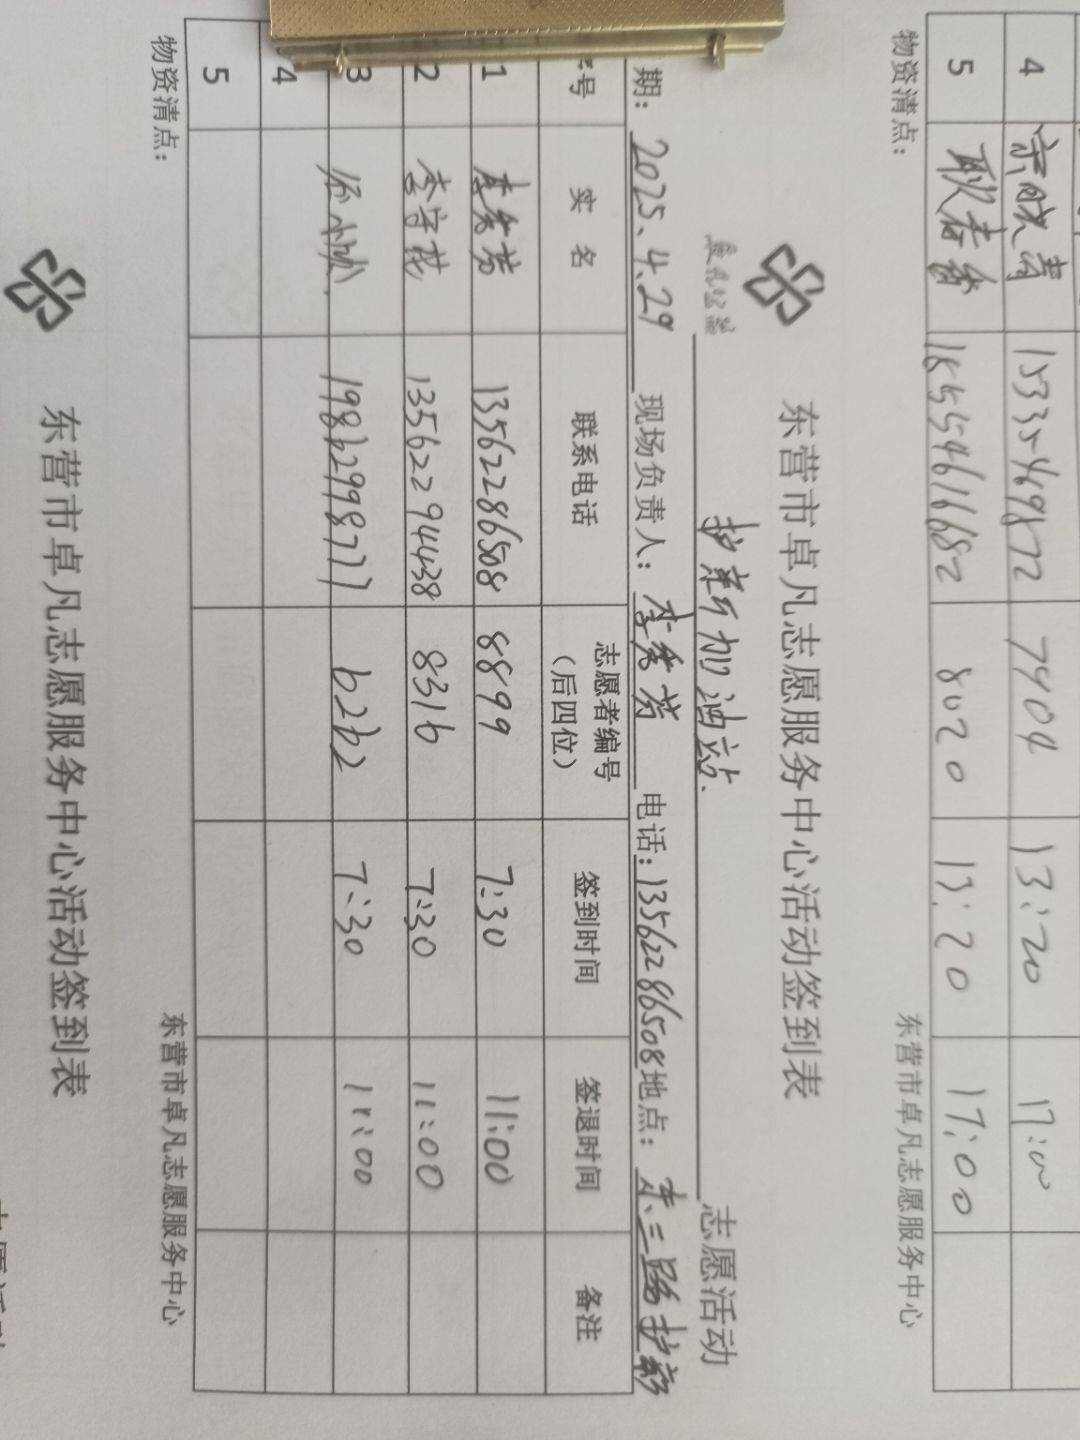 4 宗晓青 15335469872 7404 13:20 17:00
5 耿春香 18554616682 8020 13:20 17:00
物资清点： 东营市卓凡志愿服务中心
东营市卓凡志愿服务中心活动签到表
护薪加油站 志愿活动
期：2025.4.29 现场负责人：李秀芳 电话：13562286508 地点：东三路护薪
号 实名 联系电话 志愿者编号（后四位） 签到时间 签退时间 备注
1 李秀芳 13562286508 8899 7:30 11:00
2 李守花 13562294438 8316 7:30 11:00
3 19862998777 6262 7:30 11:00
4
5
物资清点： 东营市卓凡志愿服务中心
东营市卓凡志愿服务中心活动签到表